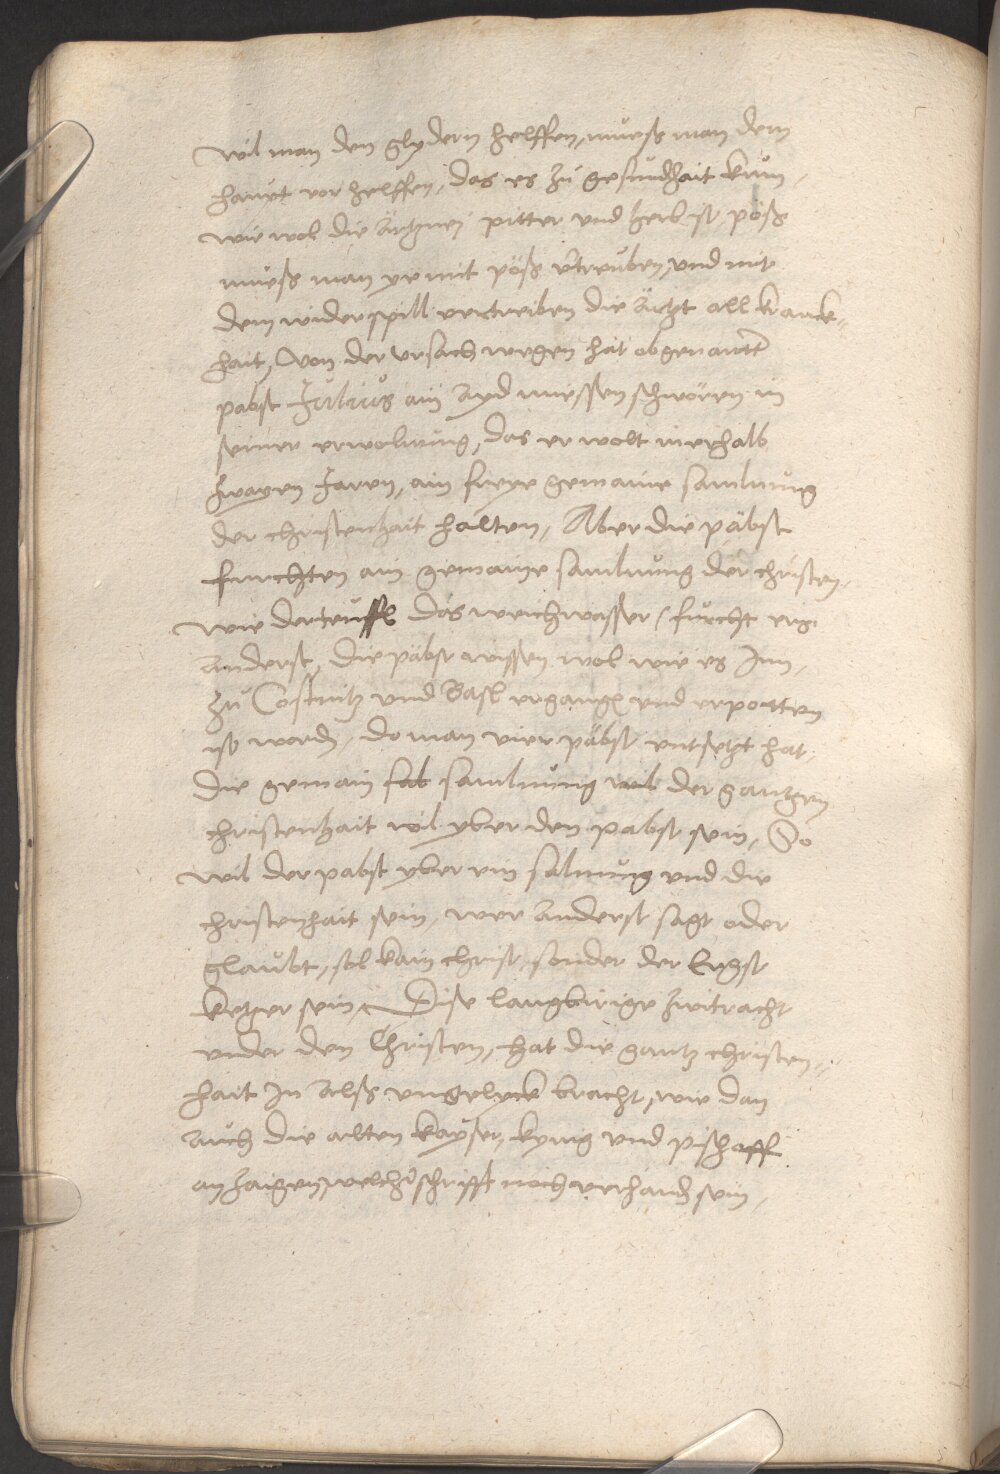 wil man den glydern helffen, muess man dem
haupt vor helffen, das es zu gesundhait kum,
wie wol die ärtzney pitter und herb ist, pöss
muess man ye mit pöss vertreyben, und mit
dem widerspill vertreiben die ärtzt all kranck-
hait, Von der ursach wegen hat obgenantter
pabst Julius ain ayd muessen schwören in
seiner erwelung, das er wolt inerhalb
zwayen Jaren, ain freye gemaine samlung
der christenhait halten, Aber die päbst
furchten ain gemaine samlung der christen,
wie der teuffl das weichwasser, furcht
anderst, die päbst wissen wol wie es Inn,
zu Costnitz und Basl ergangen und erpotten
ist worden, do man vier päbst entsetzt hat,
die gemain sab samlung wil der gantzen
christenhait wil yber den pabst sein, So
wil der pabst yber ein samlung und die
christenhait sein, wer anderst sagt oder
glaubt, sol kain christ, sonder der Ergst
ketzer sein, Dise langwirige zwitracht
under den Christen, hat die gantz christen-
hait In alss ungelyck bracht, wie dan
auch die alten kayser, kynig und pischoff
an zaigen, welcher schrifft noch verhanden sein,